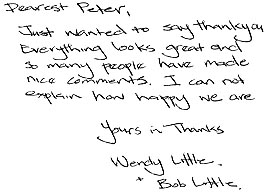 Dearest Peter,
Just wanted to say thankyou
Everything looks great and
so many people have made
nice comments. I can not
explain how happy we are
Yours in Thanks
Wendy Little.
+ Bob Little.